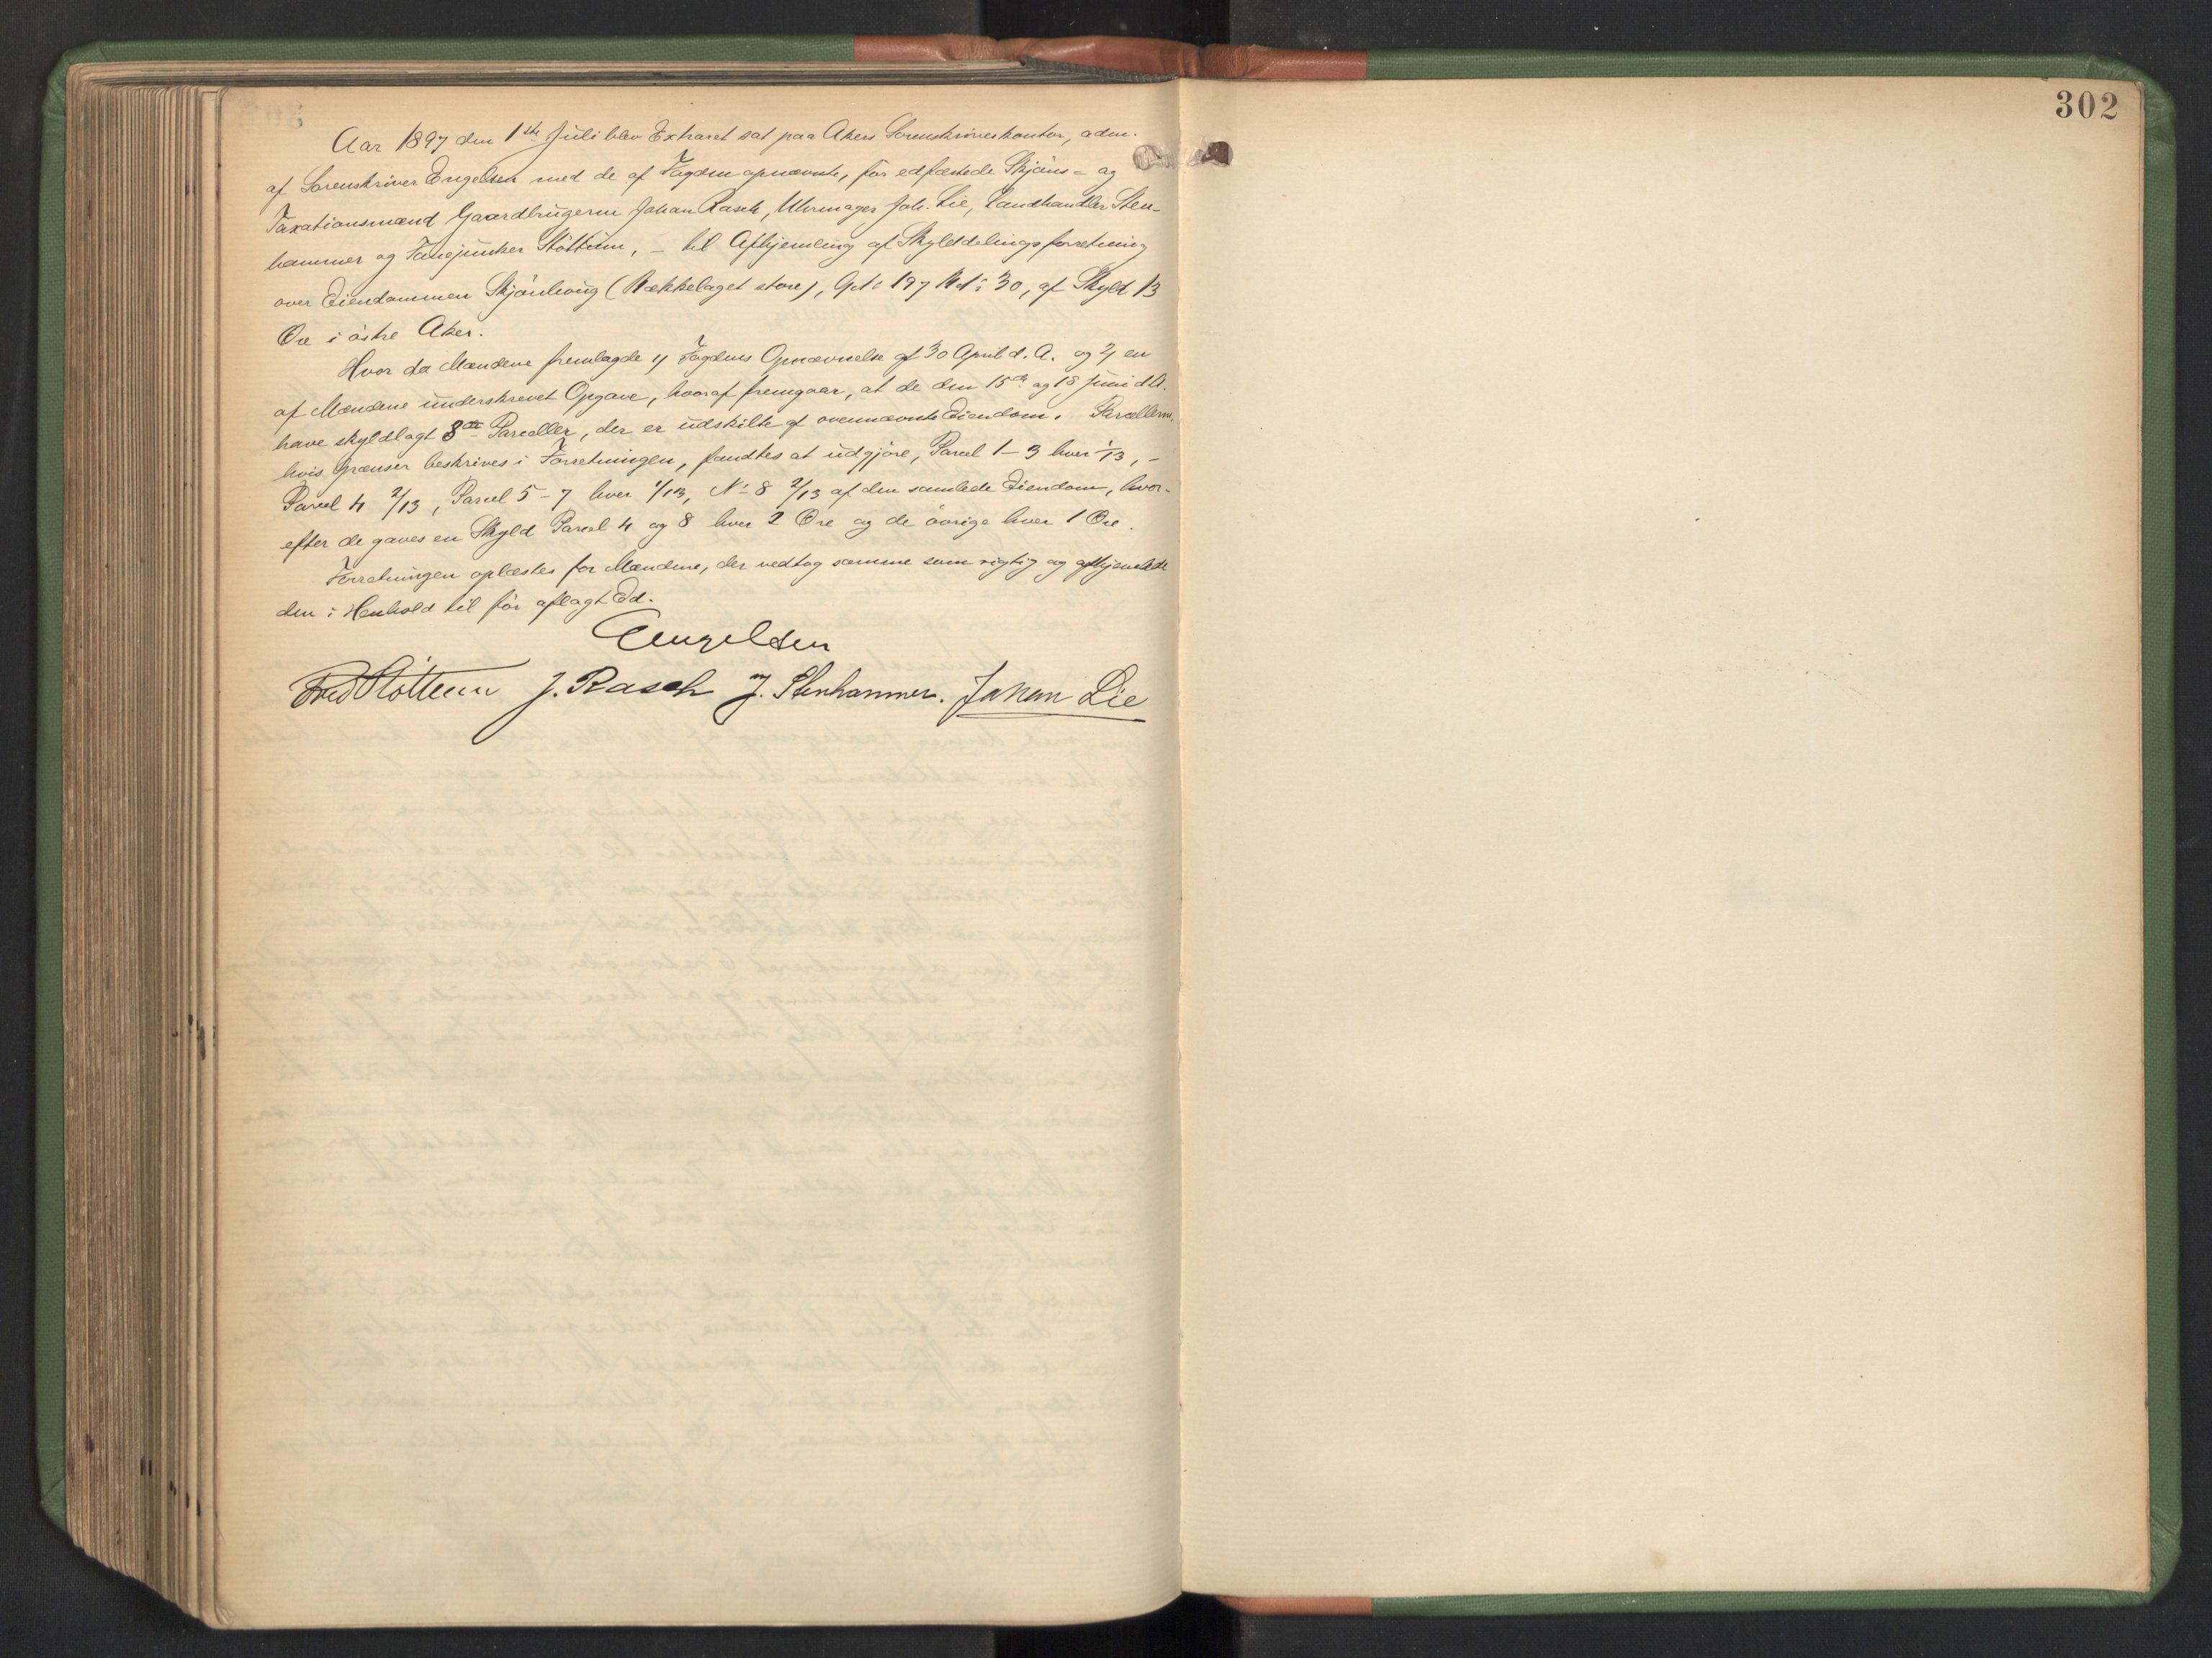 302
Aar 1897 den 1ste Juli blev Extraret sat paa Akers Sorenskriverkontor, adm.
af Sorenskriver Engelsen med de af Fogden opnævnte, før edfæstede Skjöns- og
Taxationsmænd Gaardbrugerne Johan Rasch, Uhrmager Joh. Lie, Landhandler Sten-
hammer og Fanejunker Slöttum, – til Afhjemling af Skylddelingsforretning
over Eiendommen Skjönhaug (Bækkelaget store), G.No 197 B.No 30, af Skyld 13
Öre i östre Aker.
Hvor da Mændene fremlagde 1) Fogdens Opnævnelse af 30 April d. A. og 2) en
af Mændene underskrevet Opgave, hvoraf fremgaar, at de den 15de og 18 Juni d. A.
have skyldlagt 8te Parceller, der er udskilte af ovennævnte Eiendom. Parcellerne,
hvis Grænser beskrives i Forretningen, fandtes at udgjöre, Parcel 1–3 hver 1/13, –
Parcel 4 2/13, Parcel 5–7 hver 1/13, No 8 2/13 af den samlede Eiendom, hvor-
efter de gaves en Skyld Parcel 4 og 8 hver 2 Öre og de övrige hver 1 Öre.
Forretningen oplæstes for Mændene, der vedtog samme som rigtig og afhjemlede
den i Henhold til för aflagt Ed.
Engelsen
Fred Slöttum J. Rasch J. Stenhammer. Johan Lie